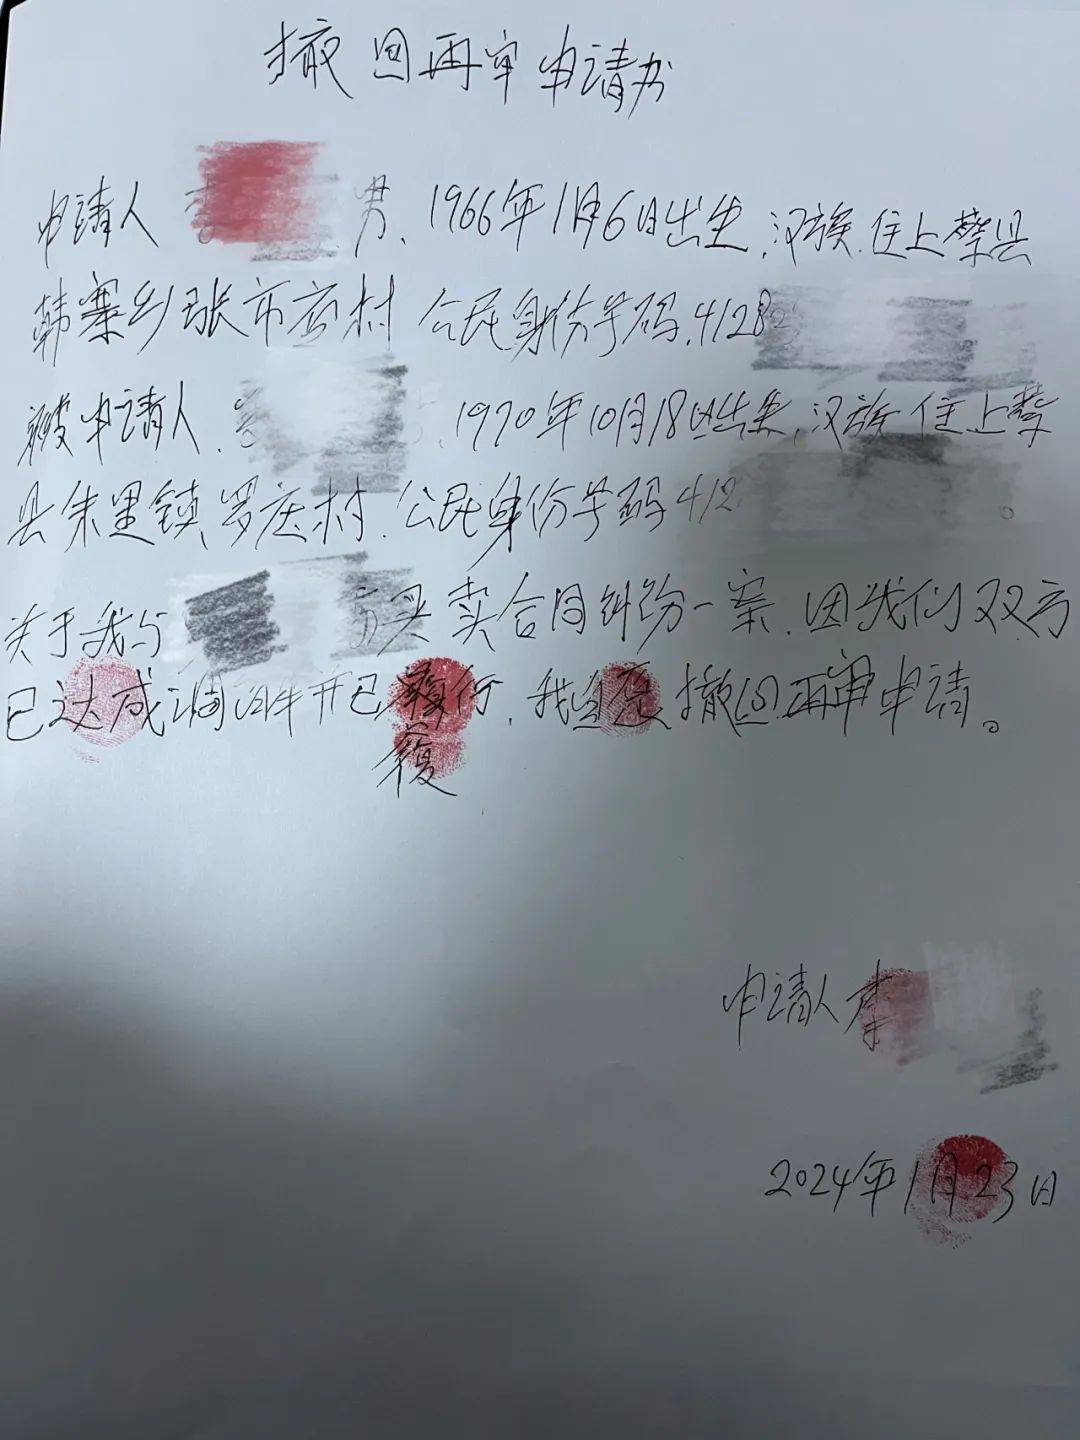 撤回再审申请书
申请人 男、1966年1月6日出生,汉族,住上蔡县
韩寨乡张市杏村 公民身份号码,4128
被申请人, ,1970年10月18日出生,汉族 住上蔡
县朱里镇罗庄村,公民身份号码412
关于我与 买卖合同纠纷一案,因我们双方
已达成调 并已履行,我自愿撤回再审申请。
履
申请人李
2024年1月23日